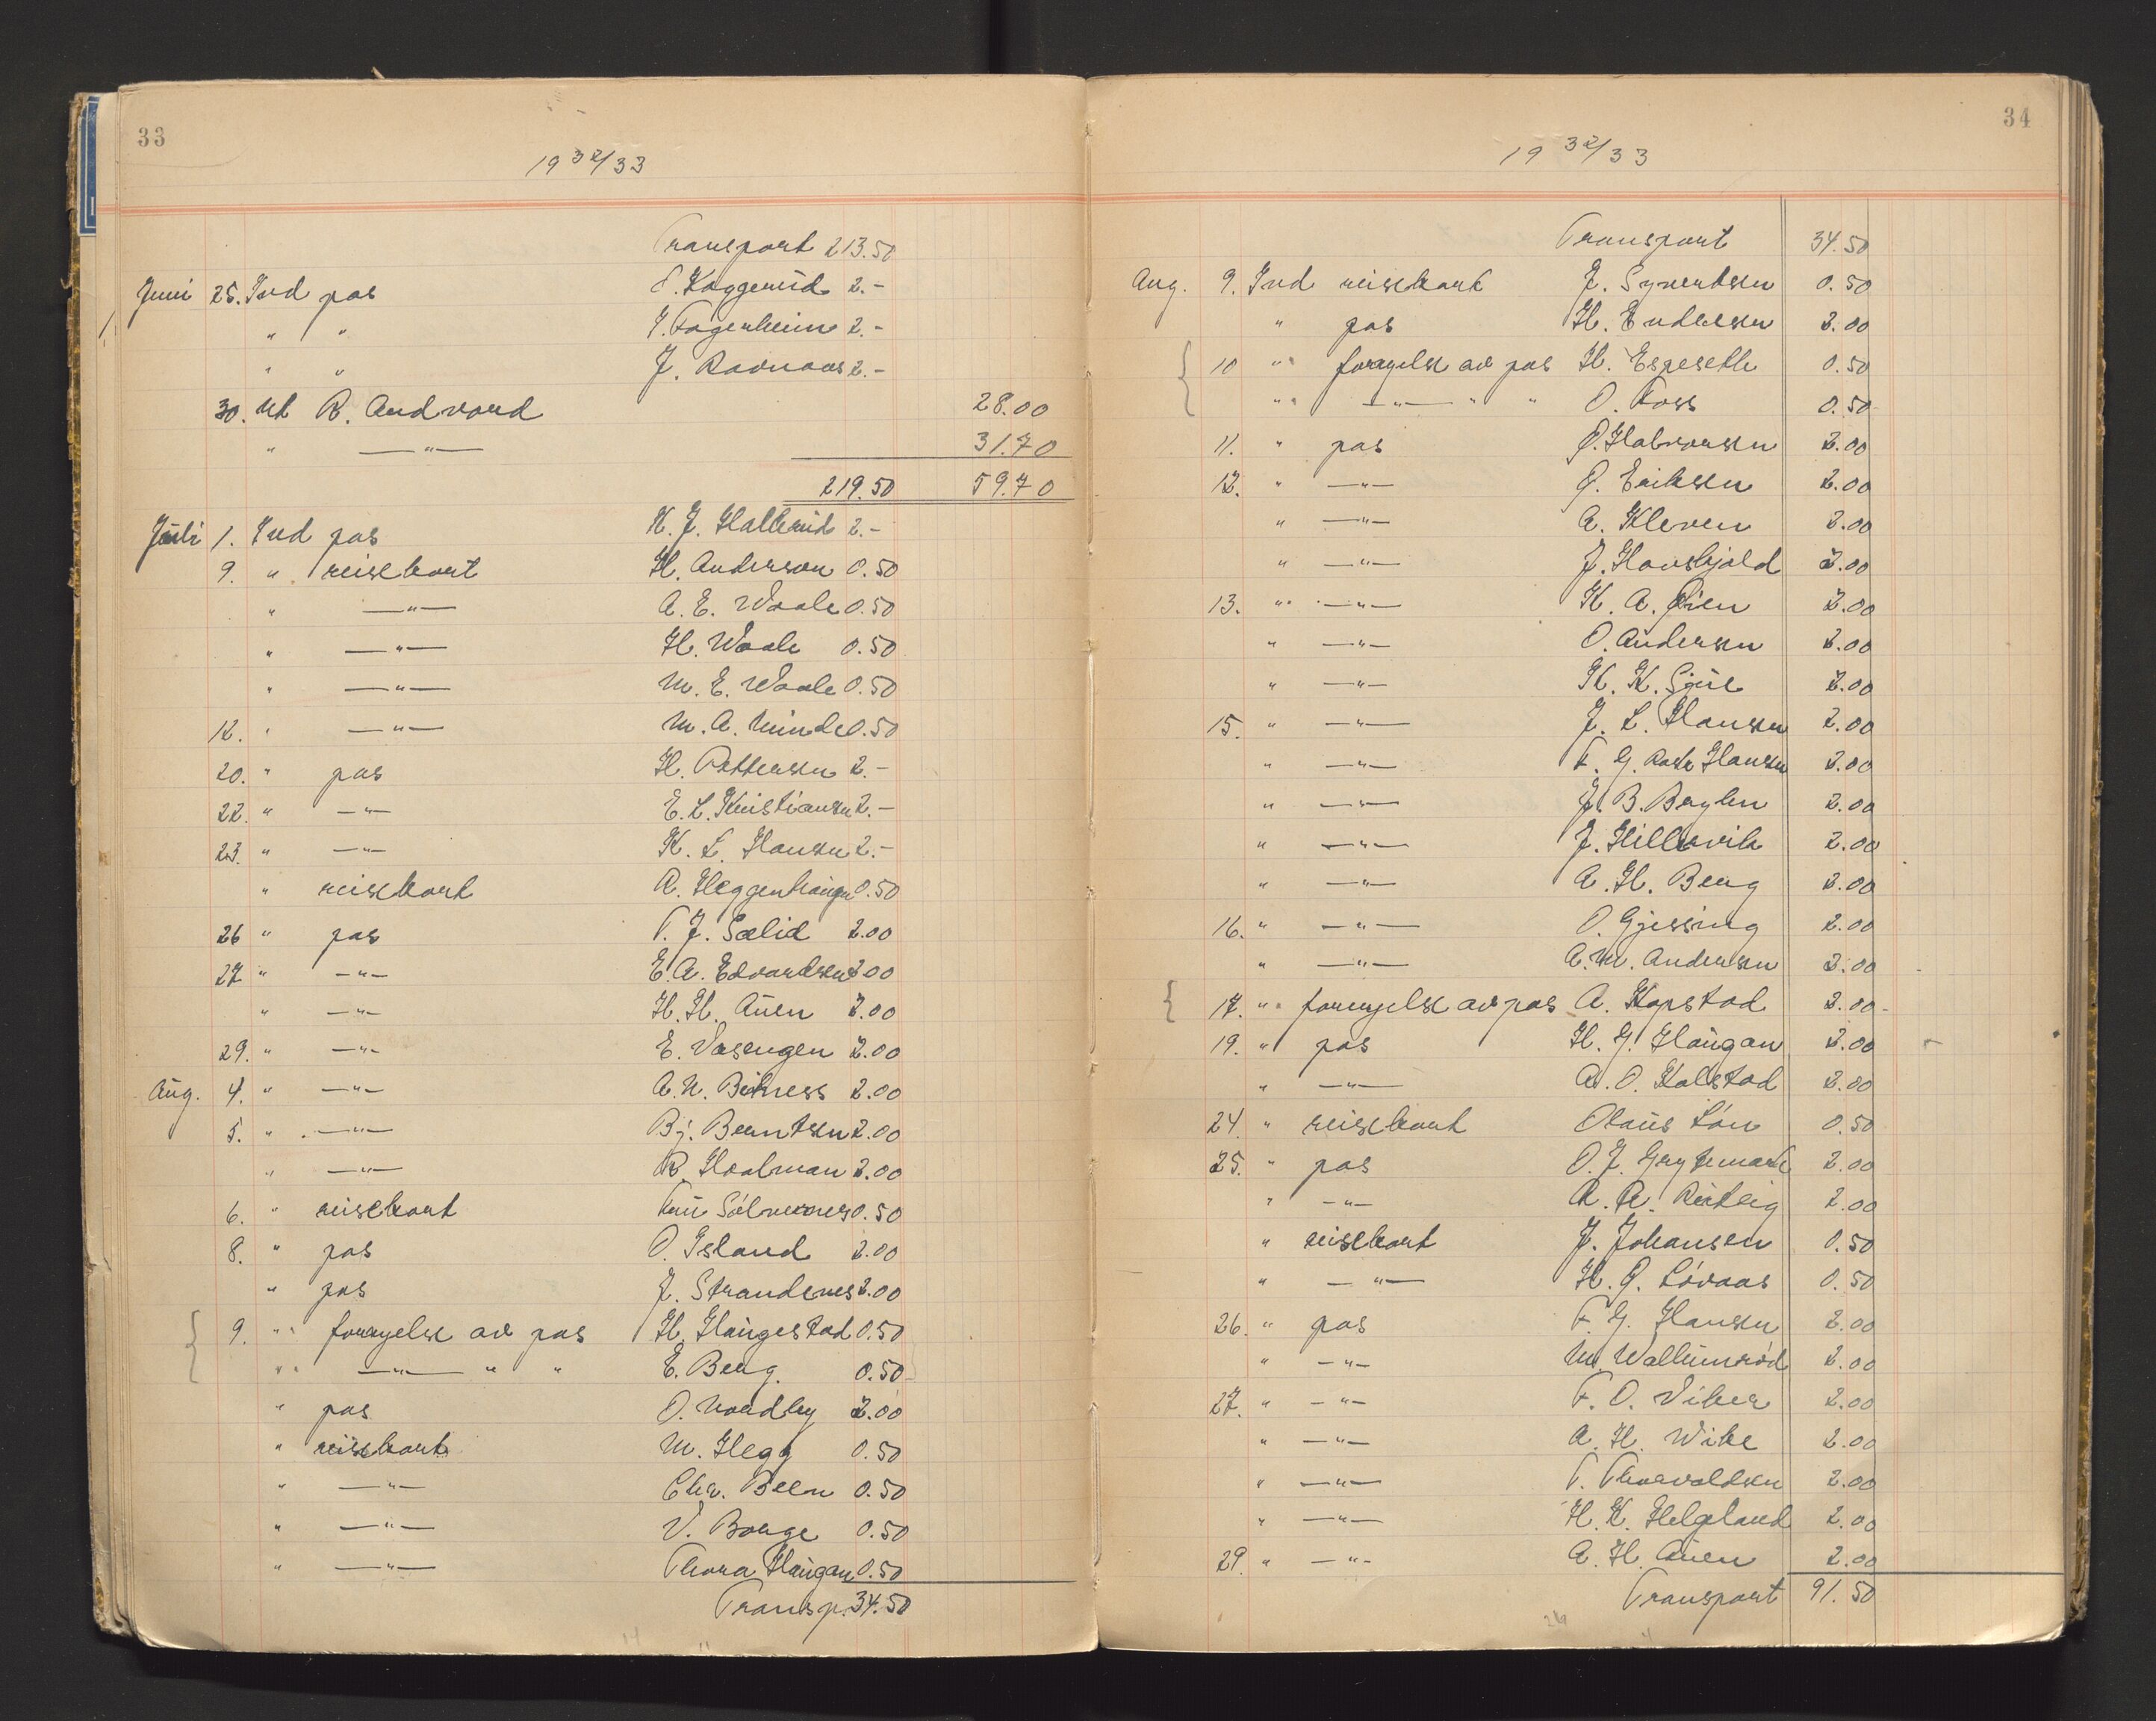 33
19 32/33
Transport 213.50
Juni 25. Ind pas Kaggerud 2.-
" " Fagerheim 2.-
" " J. Ravnaas 2.-
30. Ut R. Andvord 28.00
" —"— 31.70
219.50 59.70
Juli 1. Ind pas K. J. Hallerud 2.-
9. " reisekort H. Anderson 0.50
" —"— A. E. Waale 0.50
" —"— H. Waale 0.50
" —"— M. E. Waale 0.50
12. " —"— M. A. Minde 0.50
20. " pas H. Pettersen 2.-
22. " —"— E. L. Kristiansen 2.-
23. " —"— K. L. Hansen 2.-
" reisekort A. Heggenhaugen 0.50
26 " pas T. J. Sælid 2.00
27 " —"— E. A. Edvardsen 2.00
" —"— H. H. Auen 2.00
29. " —"— E. Vasengen 2.00
Aug. 4. " —"— A. N. Bitness 2.00
5. " —"— Bj. Berntsen 2.00
" —"— R. Hoalman 2.00
6. " reisekort 0.50
8. " pas O. Island 2.00
" pas J. Strandenes 2.00
9. " fornyelse av pas H. Haugestad 0.50
" —"— " " E. Berg. 0.50
" pas O. Nordby 2.00
" reisekort M. Hegg 0.50
" —"— Chr. Been 0.50
" —"— V. Borge 0.50
" —"— Thora Haugan 0.50
Transp. 34.50
34
19 32/33
Transport 34.50
Aug. 9. Ind reisekort J. Syvertsen 0.50
" pas H. Endresen 2.00
10 " fornyelse av pas H. Espeseth 0.50
" —"— " " O. Foss 0.50
11. " pas O. Halvorsen 2.00
12. " —"— O. Eriksen 2.00
" —"— A. Kleven 2.00
" —"— J. Hovskjold 2.00
13. " —"— K. A. Øien 2.00
" —"— O. Andersen 2.00
" —"— K. K. Sjule 2.00
15. " —"— J. L. Hansen 2.00
" —"— F. G. Hansen 2.00
" —"— J. B. Bryhn 2.00
" —"— J. Hillervik 2.00
" —"— A. H. Berg 2.00
16. " —"— O. Gjessing 2.00
" —"— A. M. Andersen 2.00
17. " fornyelse av pas A. Kopstad 2.00
19. " pas H. G. Haugan 2.00
" —"— A. O. Kolstad 2.00
24. " reisekort Olaus Løn 0.50
25. " pas O. J. Grytemark 2.00
" —"— A. A. 2.00
" reisekort J. Johansen 0.50
" —"— H. G. Løvaas 0.50
26. " pas F. G. Hansen 2.00
" —"— M. Wallumrød 2.00
27. " —"— F. O. Viker 2.00
" —"— A. H. Wike 2.00
" —"— T. Thorvaldsen 2.00
" —"— H. K. Helgeland 2.00
29. " —"— A. H. Auen 2.00
Transport 91.50